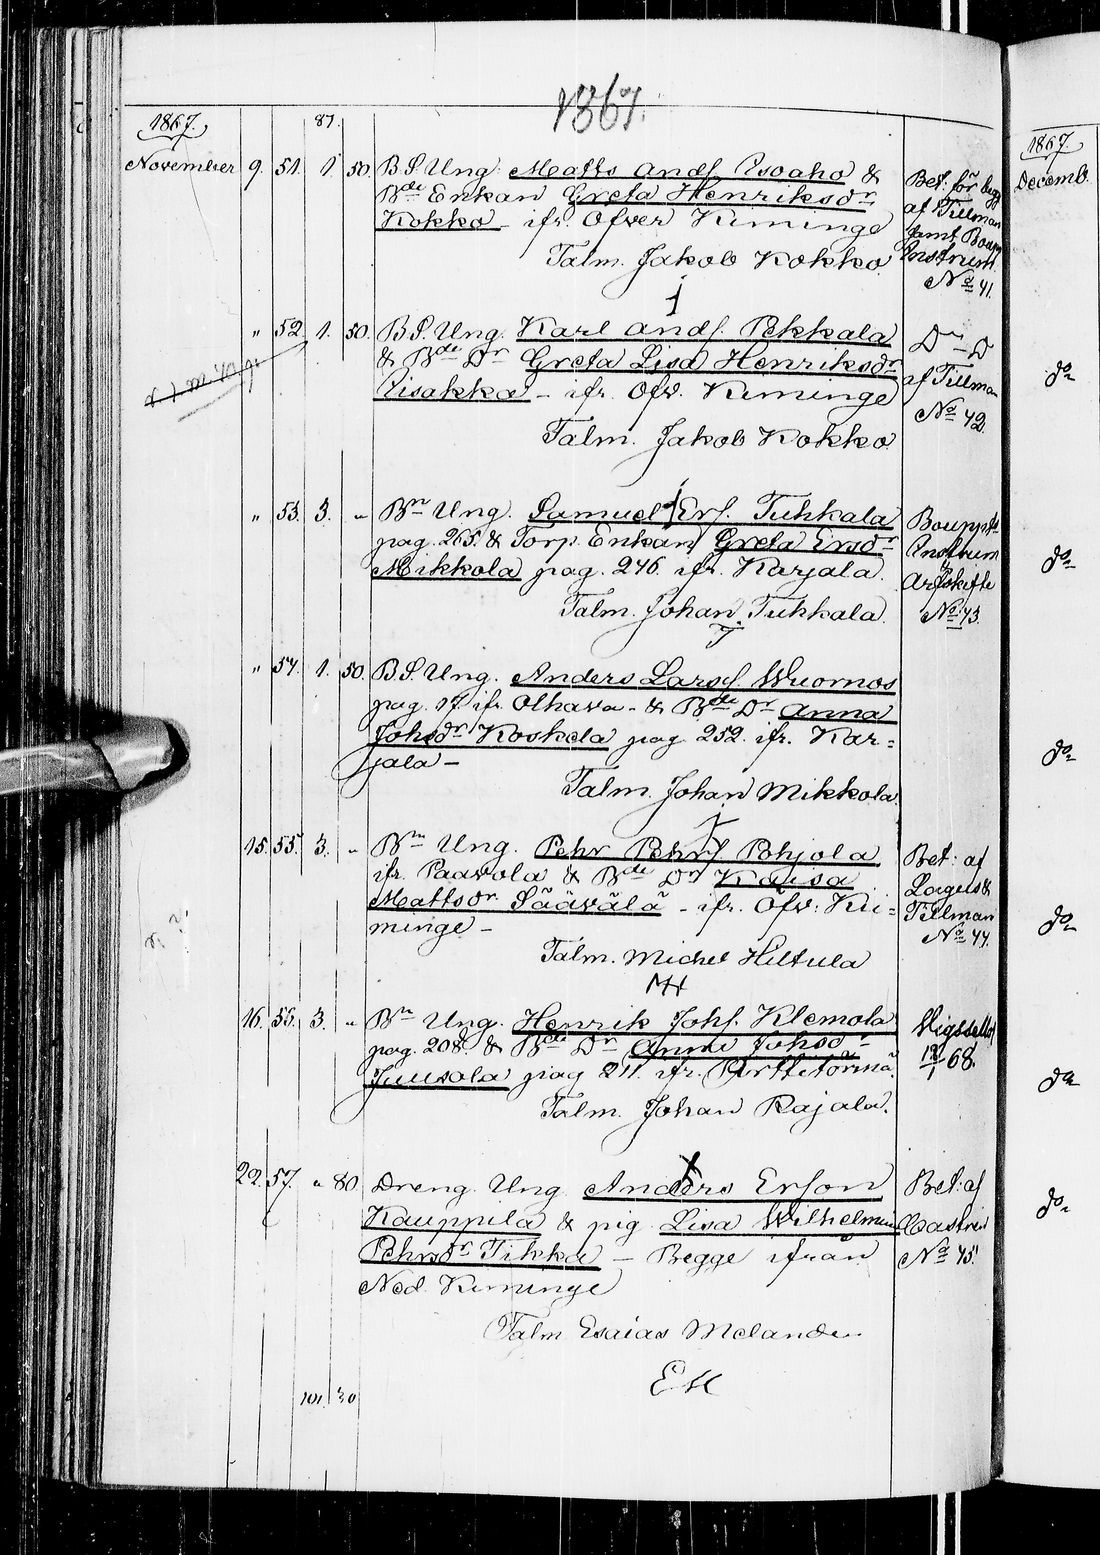 1867.
1867. 87.
November 9. 51. 1 50. B.S. Ung. Matts Andſ. Isoaho &
Bde Enkan Greta Henriksdr
Kokko - ifr. Öfver Kiminge
Talm. Jakob Kokko.
Bet. för
af Tillman
jemt. Boupp
Instrum.
No 41.
" 52. 1. 50. B.S. Ung. Karl Andſ. Pekkala
& Bde Dr Greta Lisa Henriksdr
Iisakka - ifr. Öfv. Kiminge
Talm. Jakob Kokko.
D - D
af Tillman
No 42.
" 53. 3. " Bn Ung. Samuel Erſ. Tuhkala
pag. 265. & Torp. Enkan Greta Ersdr
Mikkola pag. 246. ifr. Karjala.
Talm. Johan Tuhkala.
Bouppt
Instrum
Arfskifte
No 43.
" 54. 1. 50. B.S. Ung. Anders Larsſ. Wuornos
pag. 17. ifr. Olhava - & Bde Dr Anna
Johsdr Koskela pag. 252. ifr. Kar=
jala -
Talm. Johan Mikkola.
15. 55. 3. " Bn Ung. Pehr Pehrſ. Pohjola
ifr. Paavola & Bde Dr Kaisa
Mattsdr Säävälä - ifr. Öfv: Kii=
minge -
Talm. Michel Hiltula
MH
Bet: af
Lagus &
Tillman
No 44.
16. 56. 3. " Bn Ung. Henrik Johſ. Klemola
pag. 208. & Bde Dr Anna Johsdr
Juusola pag 211. ifr. Perttitörmä.
Talm. Johan Rajala.
Vigssellad
12/1 68.
22. 57. " 80. Dreng. Ung. Anders Erſson
Kauppila & pig. Lisa Wilhelmina
Pehrsdr Tikka - Begge ifrån
Ned. Kiminge
Talm. Esaias Melander
EM
Bet: af
Castrén
No 45.
101. 30
1867.
Decemb.
do
do
do
do
do
do